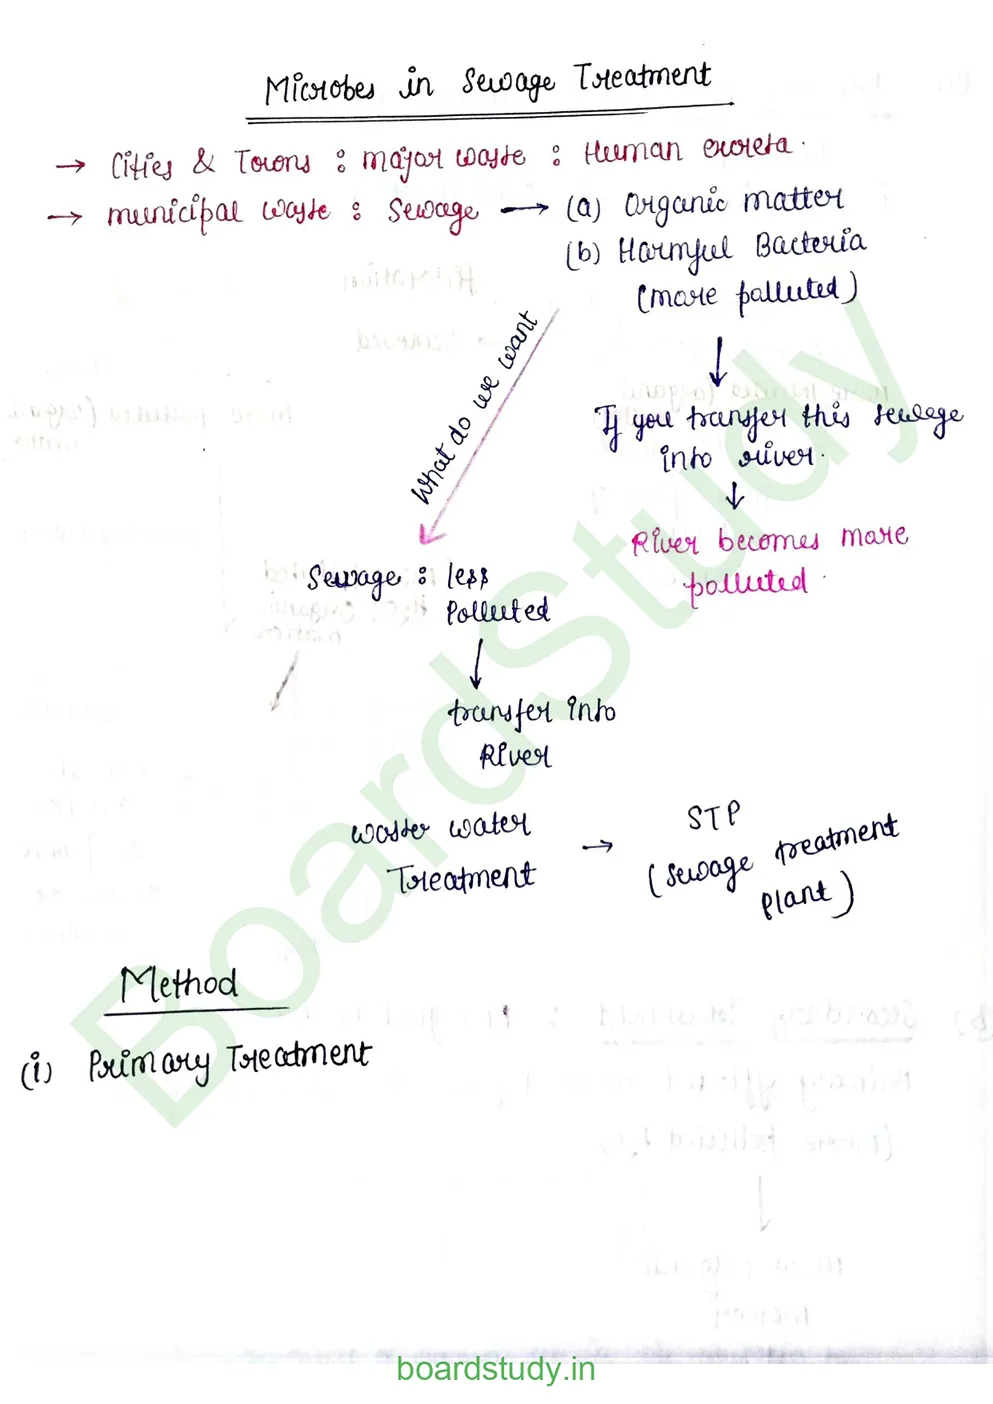 Microbes in Sewage Treatment
→ Cities & Towns : major waste : Human excreta.
→ municipal waste : Sewage → (a) Organic matter
(b) Harmful Bacteria
(more polluted)
What do we want
↓
If you transfer this sewage
into river.
↓
River becomes more
polluted.
Sewage : less
Polluted
↓
transfer into
River
Waste water
Treatment
→ STP
(Sewage treatment
Plant)
Method
(i) Primary Treatment
BoardStudy
boardstudy.in